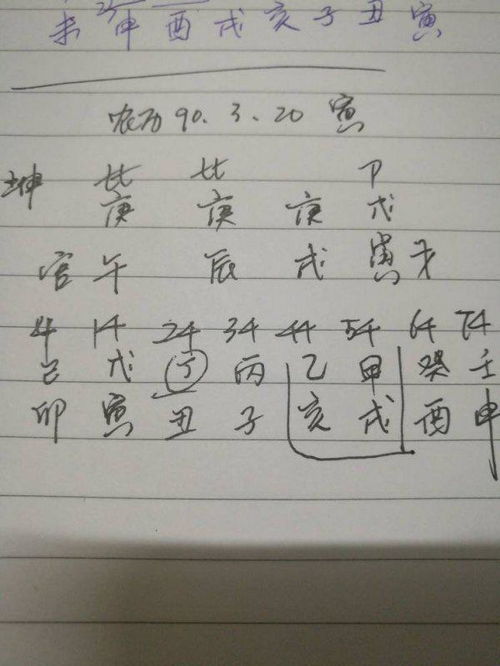 未 申 酉 戌 亥 子 丑 寅
农历90.3.20 寅
坤 比 比 卩
庚 庚 庚 戊
官 午 辰 戌 寅 才
4 14 24 34 44 54 64 74
己 戊 丁 丙 乙 甲 癸 壬
卯 寅 丑 子 亥 戌 酉 申